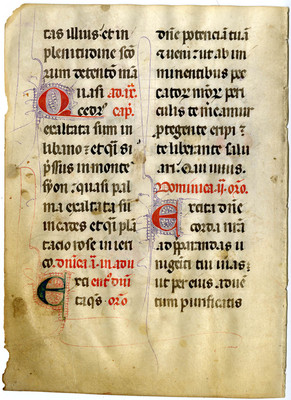 tas illius · et in
plenitudine scō
rum detentō mā
Quasi ad ᵱr̄.
cedr᷒ cap̄.
exaltata sum in
libano ⁊ et qͣ si
p̄ssus in monte
syon . quasi pal
ma exaltata sū
in cades et qͣ plā
tacio rose in ieri
co . dn̄ica .i. in adu
Erci eut᷒ dn̄i
taq̄s oro
dn̄e potenciā tuā
⁊ ueni : ut ab im
minentibus pec
cator mōr peri
culis te m̄camur
ᵱtegente eripi ⁊
te liberante salu
ari . Qui uiuis .
Dominica .ii. oro .
Excita dn̄e
corda nr̄a
ad ppandas u
nigeiti tui uias :
ut per eius aduē
tum purificatis